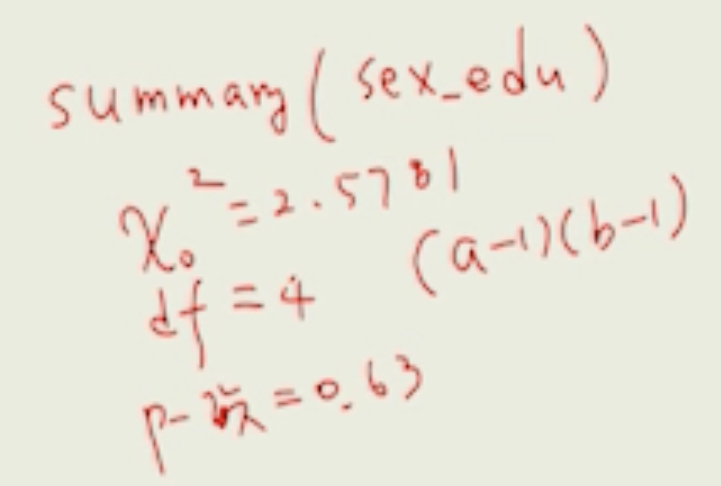 summary(sex_edu)
χ₀² = 2.5781
df = 4 (a-1)(b-1)
p-값 = 0.63